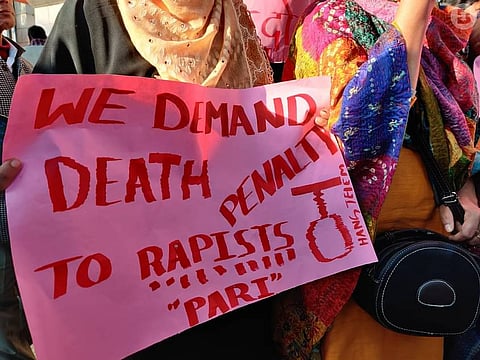 WE DEMAND
DEATH
PENALTY
TO RAPISTS
"PARI"
HANG THEM